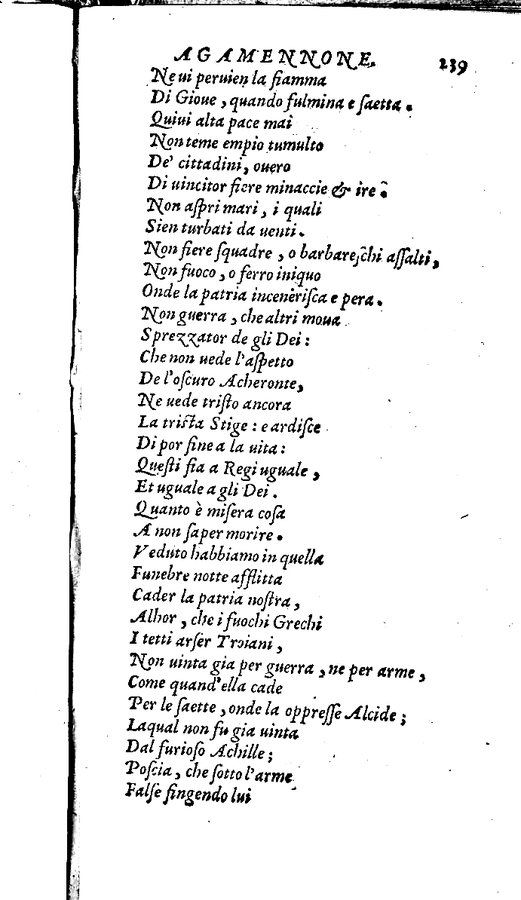 AGAMENNONE. 239
Ne ui peruien la fiamma
Di Gioue, quando fulmina e ſaetta.
Quiui alta pace mai
Non teme empio tumulto
De' cittadini, ouero
Di uincitor fiere minaccie & ire.
Non aſpri mari, i quali
Sien turbati da uenti.
Non fiere ſquadre, o barbareſchi aſſalti,
Non fuoco, o ferro iniquo
Onde la patria inceneriſca e pera.
Non guerra, che altri moua
Sprezzator de gli Dei:
Che non uede l'aſpetto
De l'oſcuro Acheronte,
Ne uede triſto ancora
La triſta Stige: e ardiſce
Di por fine a la uita:
Queſti fia a Regi uguale,
Et uguale a gli Dei.
Quanto è miſera coſa
A non ſaper morire.
Veduto habbiamo in quella
Funebre notte afflitta
Cader la patria noſtra,
Alhor, che i fuochi Grechi
I tetti arſer Troiani,
Non uinta gia per guerra, ne per arme,
Come quand'ella cade
Per le ſaette, onde la oppreſſe Alcide;
Laqual non fu gia uinta
Dal furioſo Achille;
Poſcia, che ſotto l'arme
Falſe fingendo lui